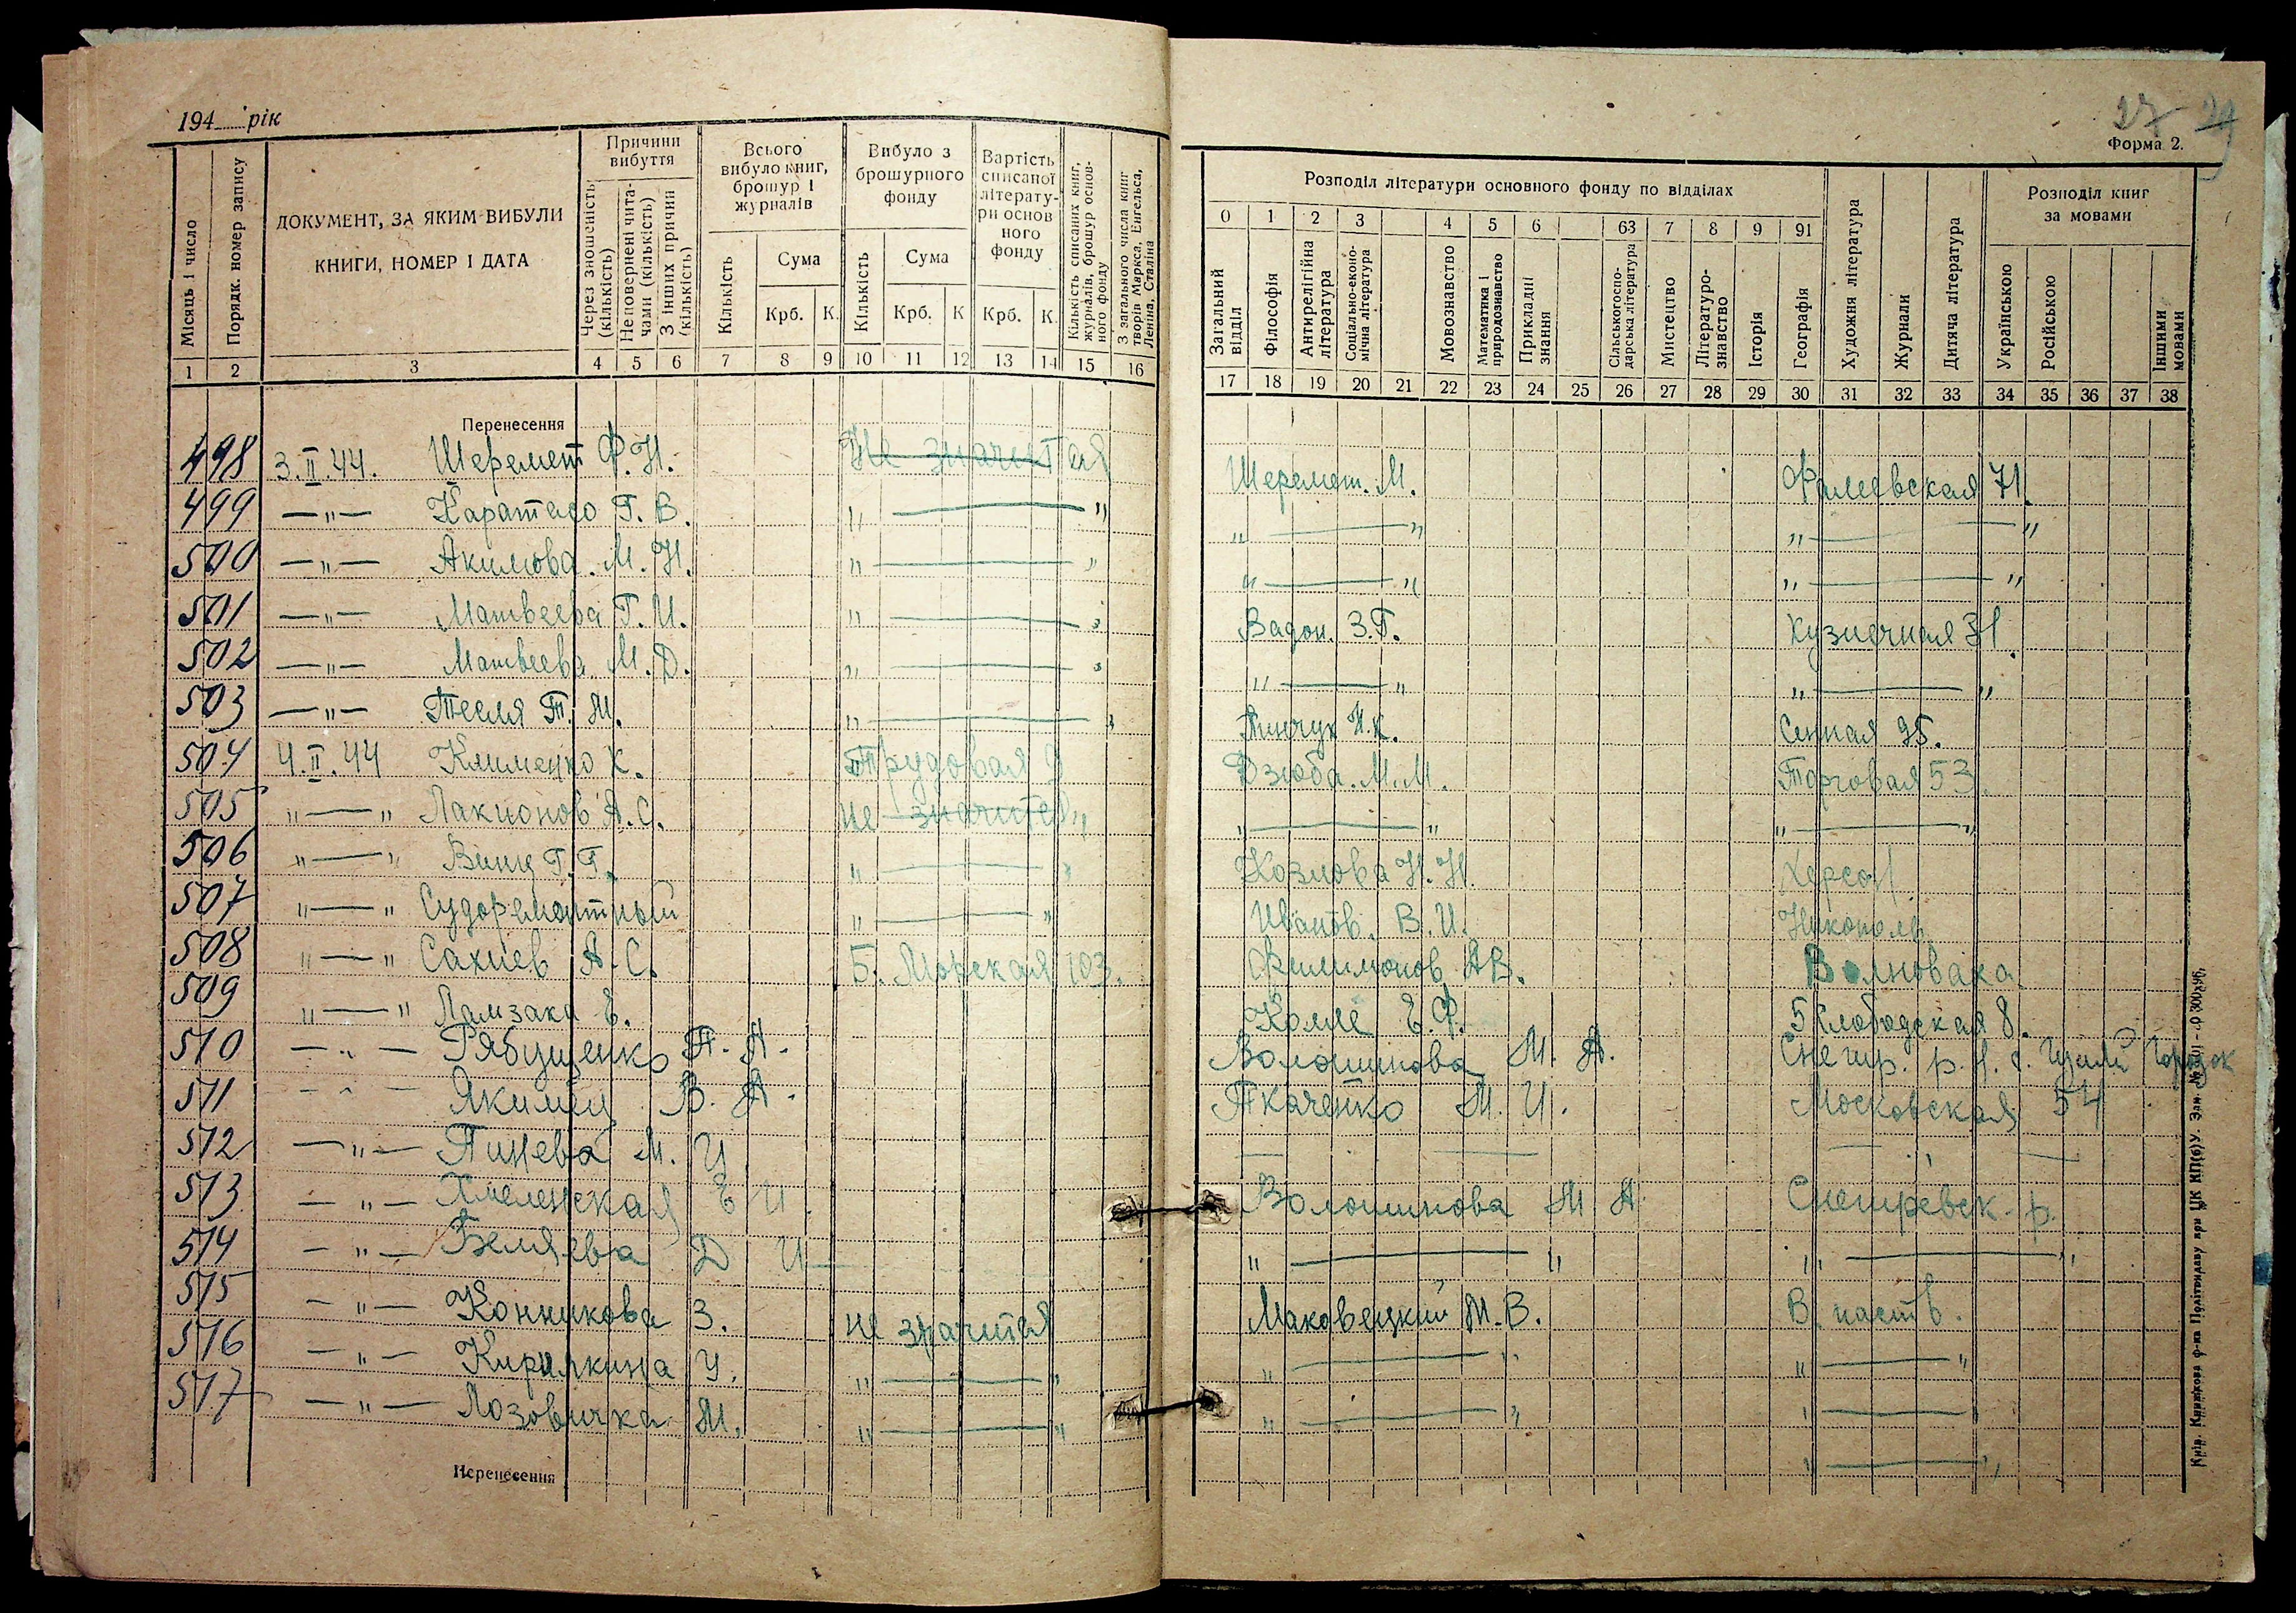 194 рік
27 29
Форма 2.
Місяць і число
Порядк. номер запису
ДОКУМЕНТ, ЗА ЯКИМ ВИБУЛИ
КНИГИ, НОМЕР І ДАТА
Причини
вибуття
Через зношеність
(кількість)
Неповернені чита-
чами (кількість)
З інших причин
(кількість)
Всього
вибуло книг,
брошур і
журналів
Кількість
Сума
Крб. К.
Вибуло з
брошурного
фонду
Кількість
Сума
Крб. К
Вартість
списаної
літерату-
ри основ
ного
фонду
Крб. К.
Кількість списаних книг,
журналів, брошур основ-
ного фонду
З загального числа книг
творів Маркса, Енгельса,
Леніна, Сталіна
1 2 3 4 5 6 7 8 9 10 11 12 13 14 15 16
Розподіл літератури основного фонду по відділах
0 1 2 3 4 5 6 63 7 8 9 91
Загальний
відділ
Філософія
Антирелігійна
література
Соціально-еконо-
мічна література
Мовознавство
Математика і
природознавство
Прикладні
знання
Сільськогоспо-
дарська література
Мистецтво
Літературо-
знавство
Історія
Географія
Художня література
Журнали
Дитяча література
Розподіл книг
за мовами
Українською
Російською
Іншими
мовами
17 18 19 20 21 22 23 24 25 26 27 28 29 30 31 32 33 34 35 36 37 38
Перенесення
498 3.II.44. Шеремет Ф.Н. Не значится Шеремет. М. Фалеевская 71.
499 —„— Г. В. „ — „ „ — „ „ — „
500 —„— Акимова. М. Н. „ — „ „ — „ „ — „
501 —„— Матвеева Г. И. „ — „ Вадон. З.Г. Кузнечная 31.
502 —„— Матвеева. М. Д. „ — „ „ — „ „ — „
503 —„— Тесля Т. М. „ — „ Пинчук Н.К. Сенная 95.
504 4.II.44 Клименко К. Трудовая 9 Дзюба. М.М. Торговая 53.
505 „—„ Лакионов А.С. не значится „ — „ „ — „
506 „—„ Винц Г.Г. „ — „ Козлова Н.Н. Херсон
507 „—„ Судоремонтный „ — „ Иванов. В.И. Никополь
508 „—„ Сахнев А.С. Б. Морская 103. Филимонов АВ. Волноваха
509 „—„ Ламзаки Е. Е.Ф. 5 Слободская 8.
510 —„— Рябущенко А. Волошинова М. А. Снегир. р.
511 —„— Якимец В. А. Ткаченко М. И. Московская 54
512 —„— М. И — — — „ —
513 —„— Хмеленская Е И. Волошинова М А. Снегиревск. р.
514 —„— Беляева Д И „ — „ „ — „
515 —„— Конникова З. не значится Маковецкий М.В. В.
516 —„— Кирилкина У. „ — „ „ — „ „ — „
517 —„— Лозовичка М. „ — „ „ — „ „ — „
„ — „
Перенесення